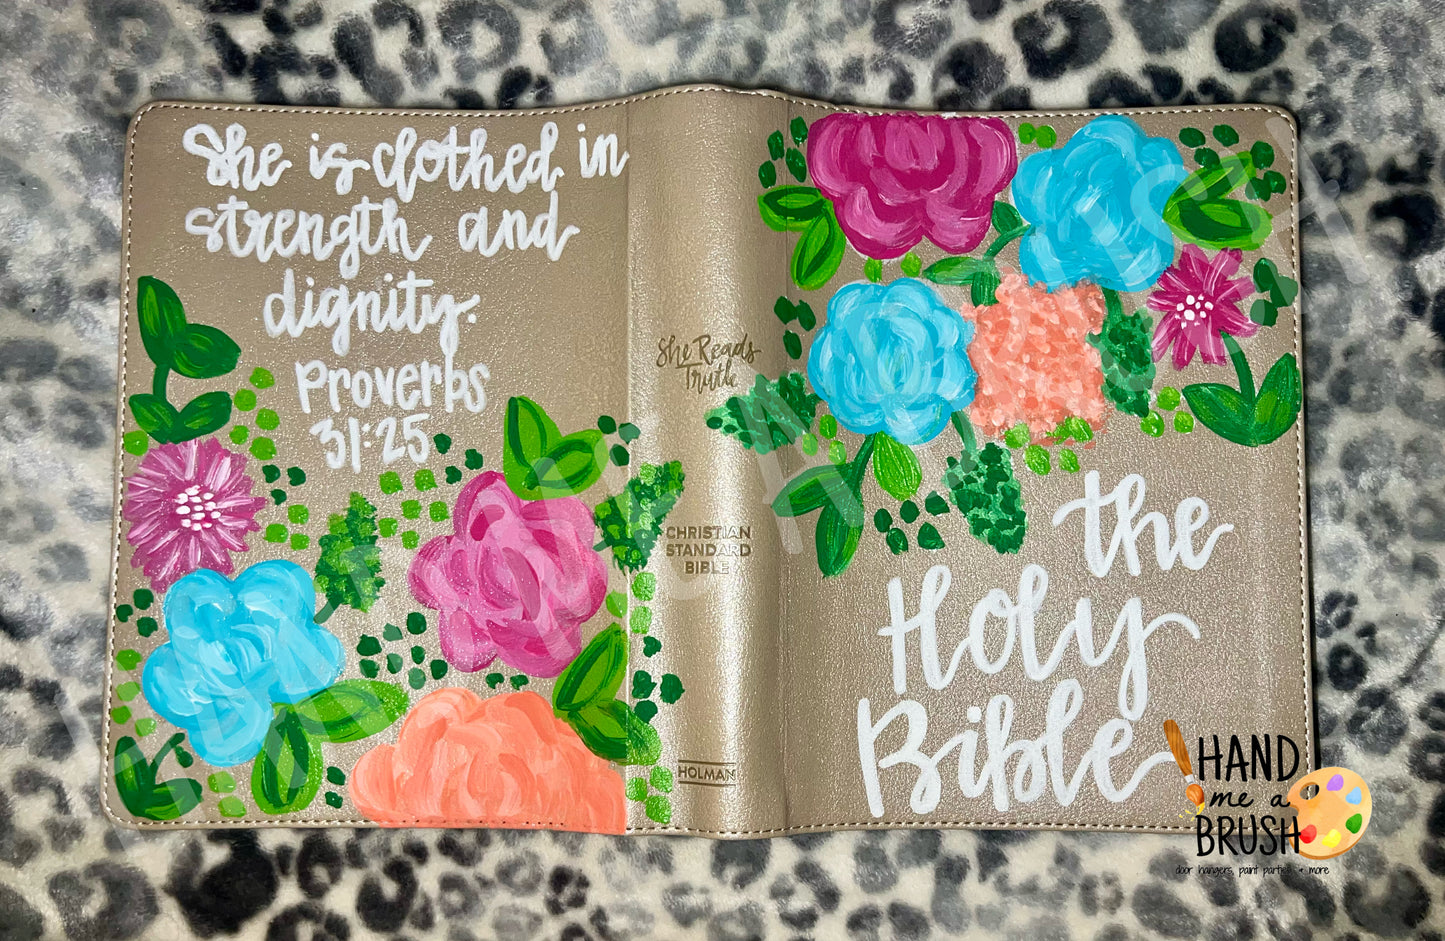 She is clothed in
strength and
dignity.
Proverbs
31:25
She Reads
Truth
CHRISTIAN
STANDARD
BIBLE
HOLMAN
the
Holy
Bible
HAND
me a
BRUSH
door hangers, paint parties & more